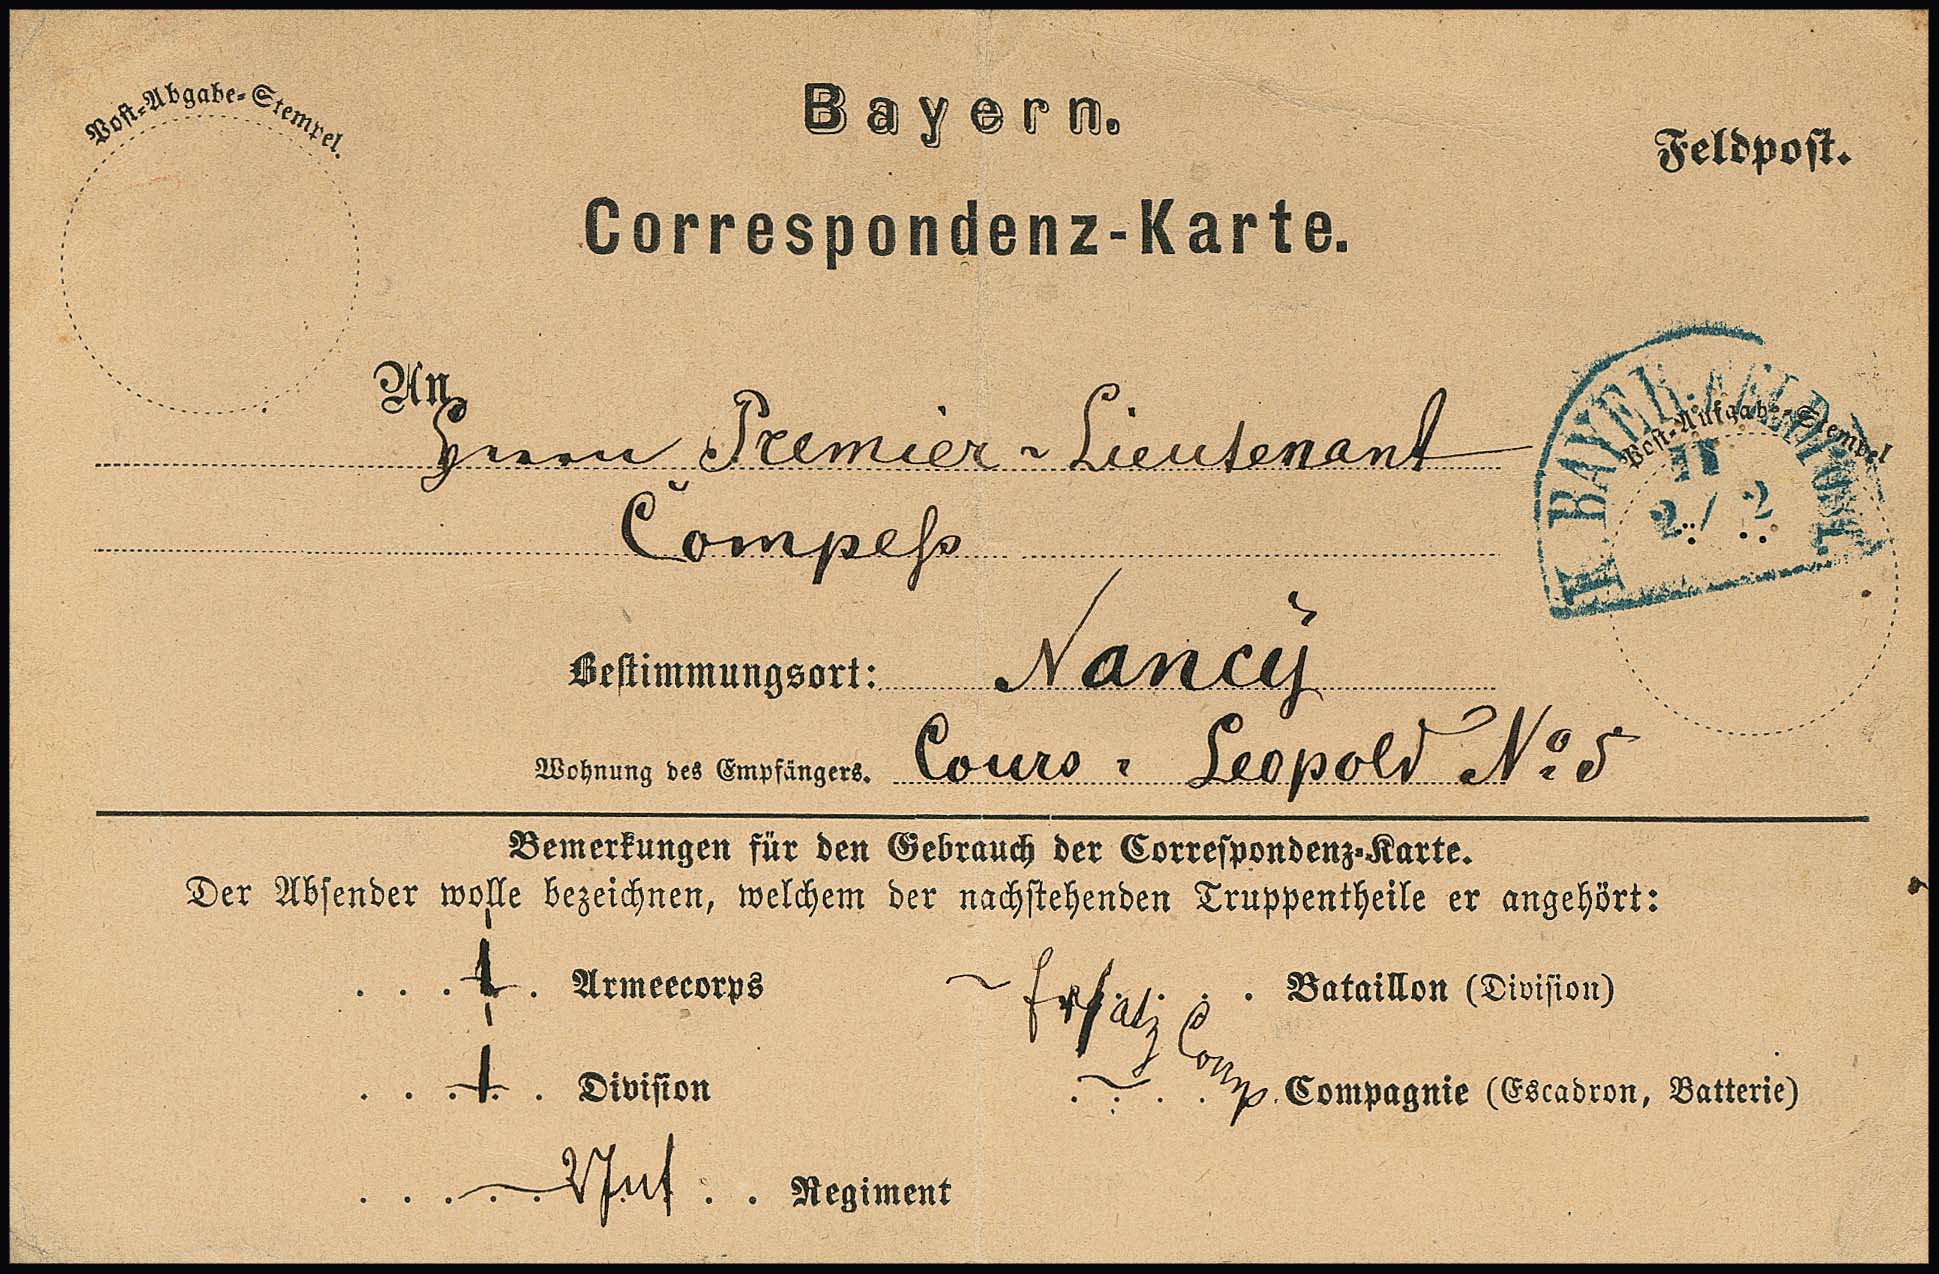 Post-Abgabe-Stempel.
Bayern.
Feldpost.
Correspondenz-Karte.
An
Herrn Premier-Lieutenant
Compeß
K. BAYER. FELDPOST
Post-Aufgabe-Stempel
II
2 / 2
Bestimmungsort: Nancy
Wohnung des Empfängers. Cours-Leopold No. 5
Bemerkungen für den Gebrauch der Correspondenz-Karte.
Der Absender wolle bezeichnen, welchem der nachstehenden Truppentheile er angehört:
. . . . . Armeecorps
Ersatz . . . Bataillon (Division)
. . . . . Division
Comp. Compagnie (Escadron, Batterie)
. . . . . Inf . . Regiment